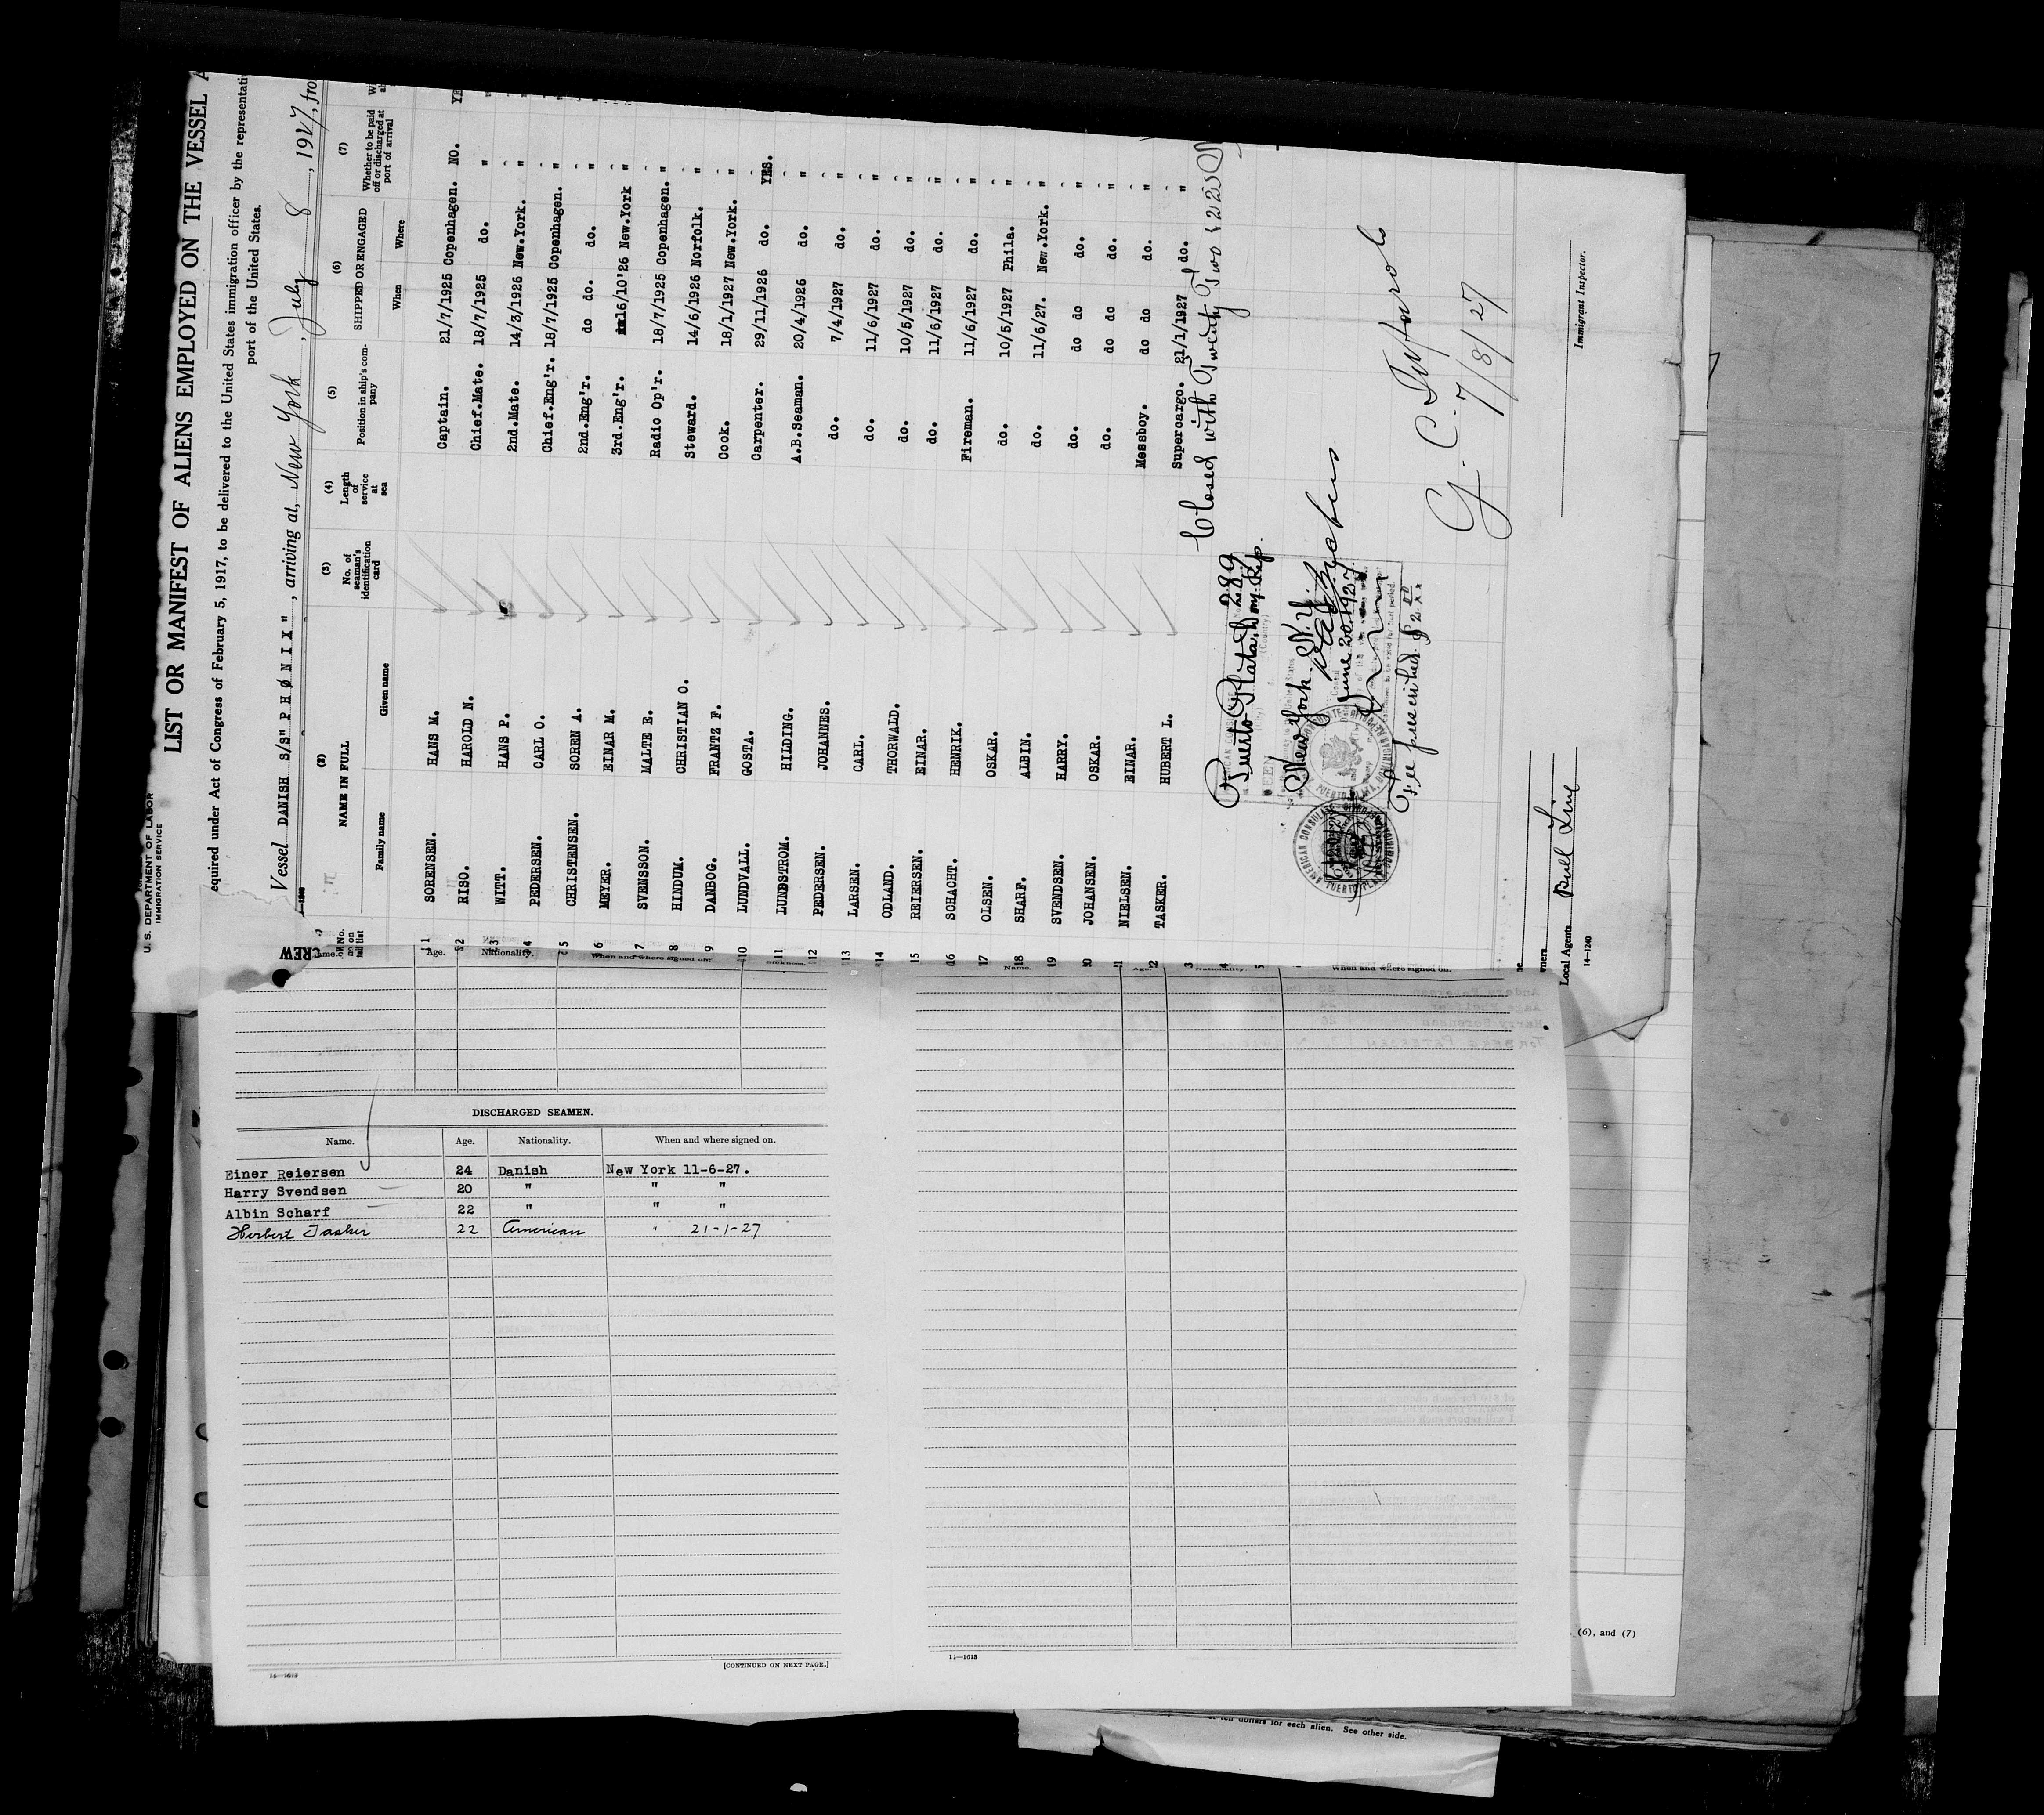 U. S. DEPARTMENT OF LABOR
IMMIGRATION SERVICE
LIST OR MANIFEST OF ALIENS EMPLOYED ON THE VESSEL A
equired under Act of Congress of February 5, 1917, to be delivered to the United States immigration officer by the representativ
port of the United States.
Vessel DANISH S/S" P H Ø N I X ", arriving at, New York, July 8, 1927, fro
CREW
(2) (3) (4) (5) (6) (7)
NAME IN FULL
Family name Given name
No. of seaman's identification card
Length of service at sea
Position in ship's com-pany
SHIPPED OR ENGAGED
When Where
Whether to be paid off or discharged at port of arrival
1 SORENSEN. HANS M. Captain. 21/7/1925 Copenhagen. NO. YE
2 RISO. HAROLD N. Chief.Mate. 18/7/1925 do. "
3 WITT. HANS P. 2nd.Mate. 14/3/1926 New.York. "
4 PEDERSEN. CARL O. Chief.Eng'r. 18/7/1925 Copenhagen. "
5 CHRISTENSEN. SOREN A. 2nd.Eng'r. do do. do. "
6 MEYER. EINAR M. 3rd.Eng'r. 16/10'26 New.York "
7 SVENSSON. MALTE E. Radio Op'r. 18/7/1925 Copenhagen. "
8 HINDUM. CHRISTIAN O. Steward. 14/6/1926 Norfolk. "
9 DANBOG. FRANTZ F. Cook. 18/1/1927 New.York. "
10 LUNDVALL. GOSTA. Carpenter. 29/11/1926 do. YES.
11 LUNDSTROM. HILDING. A.B.Seaman. 20/4/1926 do. "
12 PEDERSEN. JOHANNES. do. 7/4/1927 do. "
13 LARSEN. CARL. do. 11/6/1927 do. "
14 ODLAND. THORWALD. do. 10/5/1927 do. "
15 REIERSEN. EINAR. do. 11/6/1927 do. "
16 SCHACHT. HENRIK. Fireman. 11/6/1927 do. "
17 OLSEN. OSKAR. do. 10/5/1927 Phila. "
18 SHARF. ALBIN. do. 11/6/27. New.York. "
19 SVENDSEN. HARRY. do. do do do. "
20 JOHANSEN. OSKAR. do. do do do. "
21 NIELSEN. EINAR. Messboy. do do do. "
22 TASKER. HUBERT L. Supercargo. 21/1/1927 do. "
Closed with Twenty Two & 22
Puerto Plata, Dom. Rep. 289
New York. N. Y.
June 20, 1927
Fee prescribed. $2.00
AMERICAN CONSULATE
PUERTO PLATA, DOMINICAN REPUBLIC
7/8/27
Immigrant Inspector.
Local Agents Bull Line
14—1240
Name. Age. Nationality. When and where signed on.
DISCHARGED SEAMEN.
Name. Age. Nationality. When and where signed on.
Einer Reiersen 24 Danish New York 11-6-27.
Harry Svendsen 20 " " "
Albin Scharf 22 " " "
Herbert Tasker 22 American " 21-1-27
[CONTINUED ON NEXT PAGE.]
14—1613
14—1613
(6), and (7)
ten dollars for each alien. See other side.